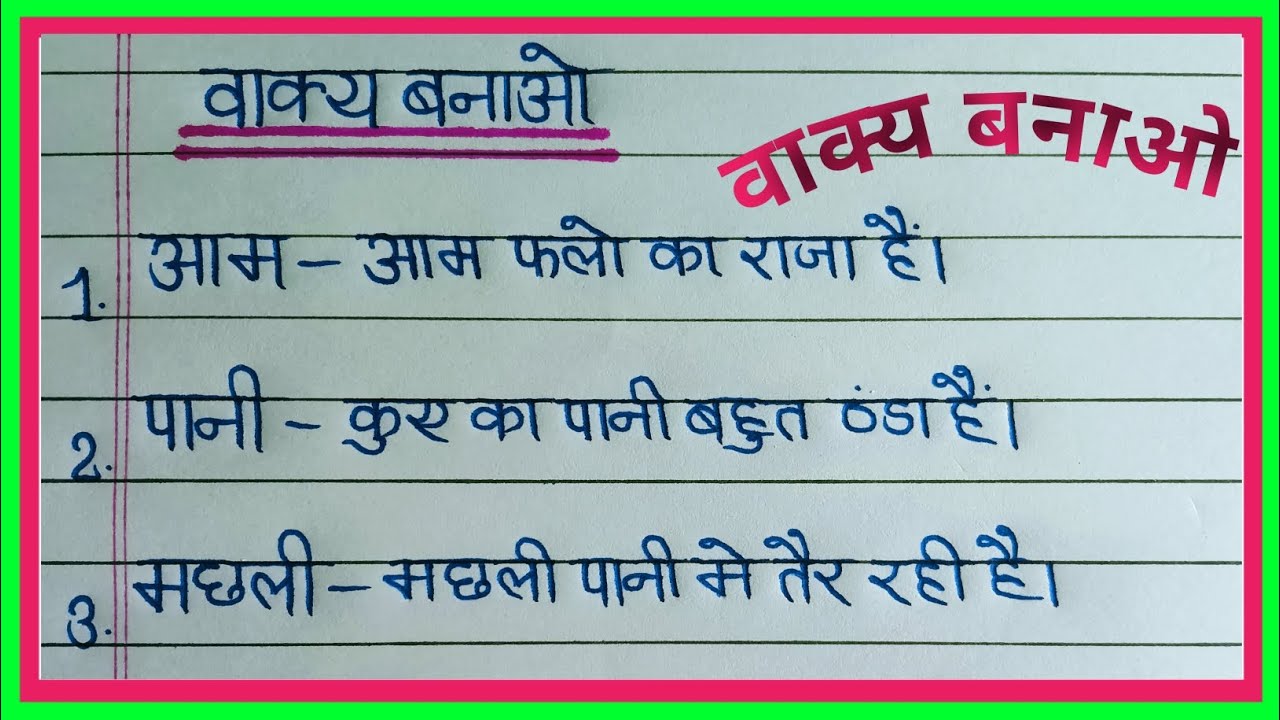 वाक्य बनाओ
वाक्य बनाओ
1. आम - आम फलो का राजा हैं।
2. पानी - कुए का पानी बहुत ठंडा हैं।
3. मछली - मछली पानी मे तैर रही है।